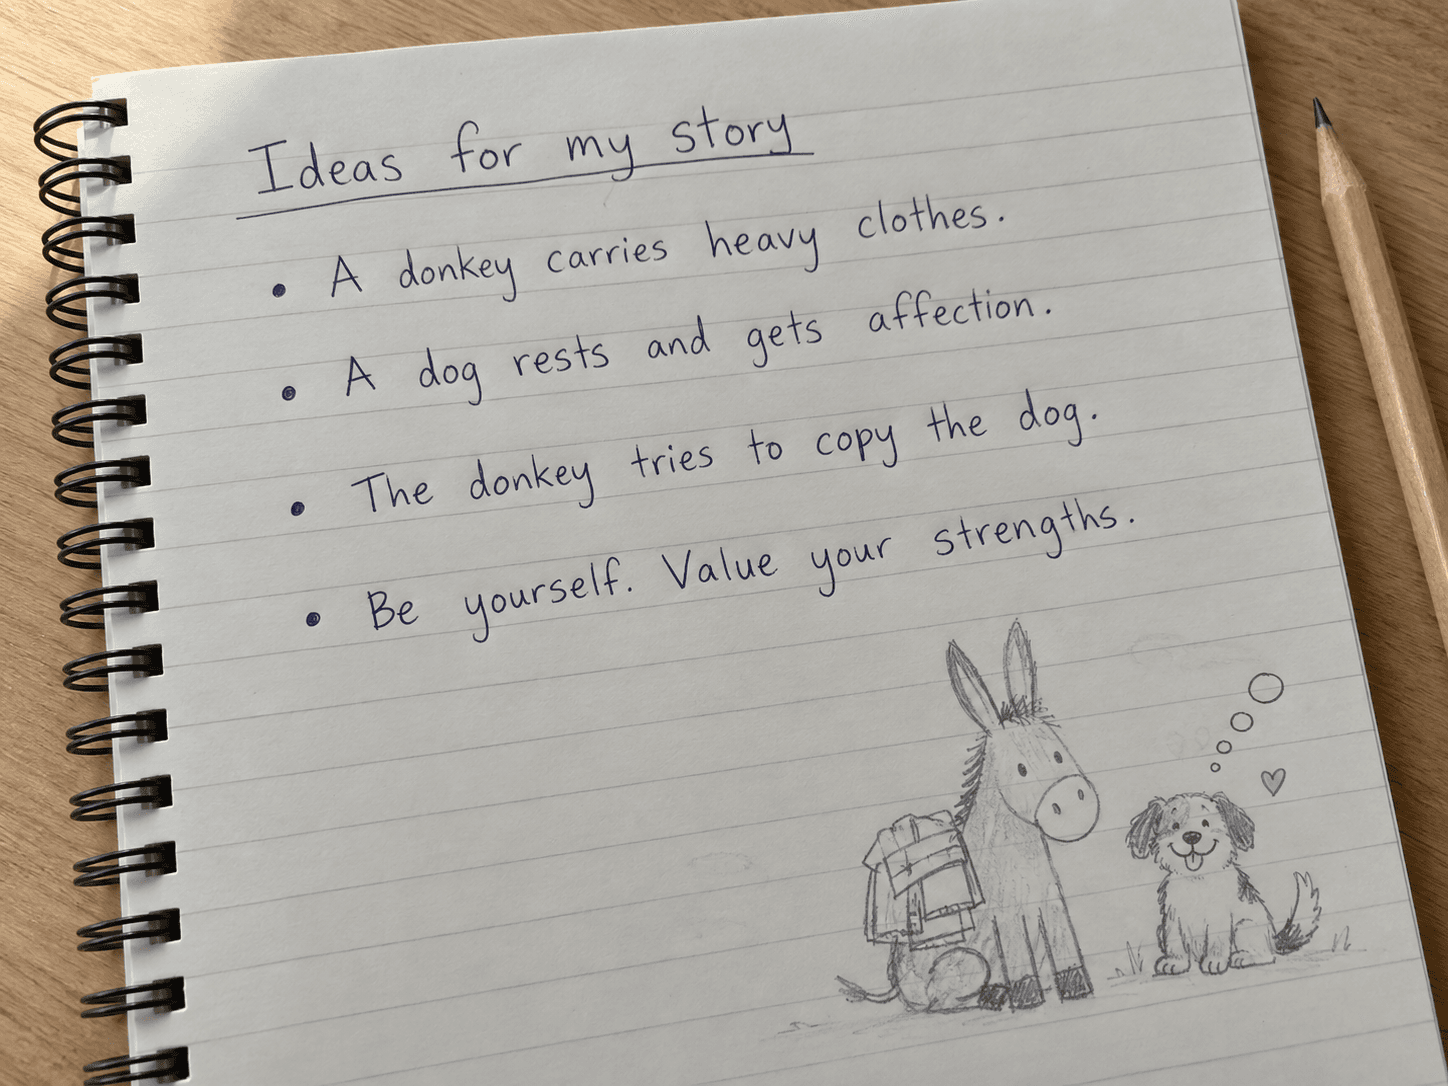 Ideas for my story
• A donkey carries heavy clothes.
• A dog rests and gets affection.
• The donkey tries to copy the dog.
• Be yourself. Value your strengths.